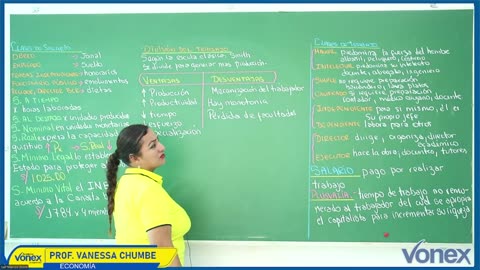 CLASES DE SALARIO
OBRERO → Jornal
EMPLEADO → Sueldo
TRABAJ. INDEPENDIENTE → honorarios
FUNCIONARIO PÚBLICO → emolumentos
S. A TIEMPO
x horas laboradas
S. AL DESTAJO x unidades producidas
S. Nominal en unidades monetarias
S. Real expresa la capacidad
S. Mínimo Legal lo establece
Estado para proteger a
1025.00
S. Mínimo Vital el INE
acuerdo a la Canasta
DIVISIÓN DEL TRABAJO
Según la escuela clásica. Smith
Se divide para generar mas producción.
VENTAJAS
DESVENTAJAS
↑ Producción
Mecanización del trabajador
↑ Productividad
Hay monotonía
↓ tiempo
Pérdida de facultades
esfuerzo
Especialización
CLASES DE TRABAJO
MANUAL predomina la fuerza del hombre
INTELECTUAL predomina la
abogado, ingeniero
SIMPLE no requiere preparación
CALIFICADO si requiere preparación
Contador, médico cirujano, docente
INDEPENDIENTE para si mismo, él es
Su propio jefe
DEPENDIENTE labora para otros
DIRECTOR dirige, organiza, director
académico
EJECUTOR hace la obra, docentes, tutores
SALARIO pago por realizar
trabajo
PLUSVALÍA tiempo de trabajo no remu-
nerado al trabajador del cual se apropia
el capitalista para incrementar su riqueza
VONEX
PROF. VANESSA CHUMBE
ECONOMÍA
VONEX